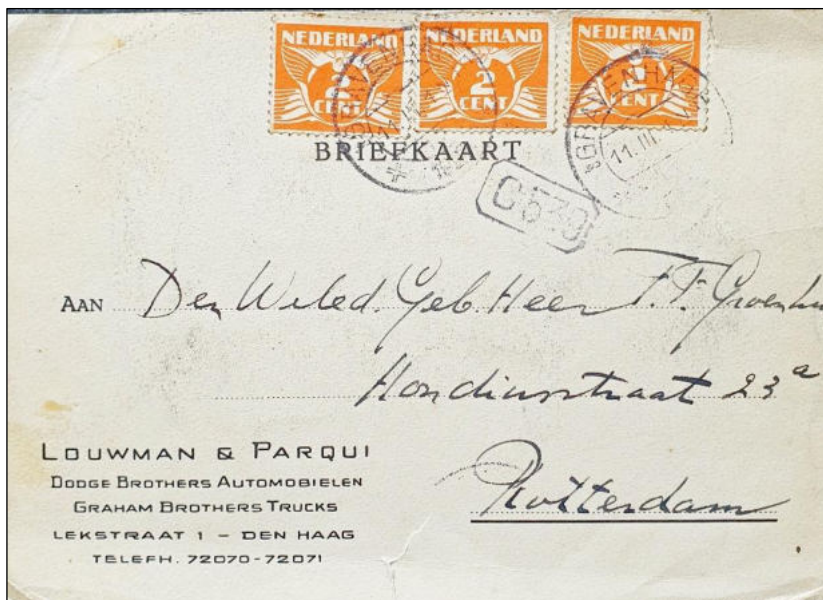 NEDERLAND NEDERLAND NEDERLAND
2 2
CENT CENT CENT
'S GRAVENHAGE
11.III
BRIEFKAART
AAN Den Weled. Geb. Heer F. F.
Hondiusstraat 23a
Rotterdam
LOUWMAN & PARQUI
DODGE BROTHERS AUTOMOBIELEN
GRAHAM BROTHERS TRUCKS
LEKSTRAAT 1 - DEN HAAG
TELEFH. 72070-72071